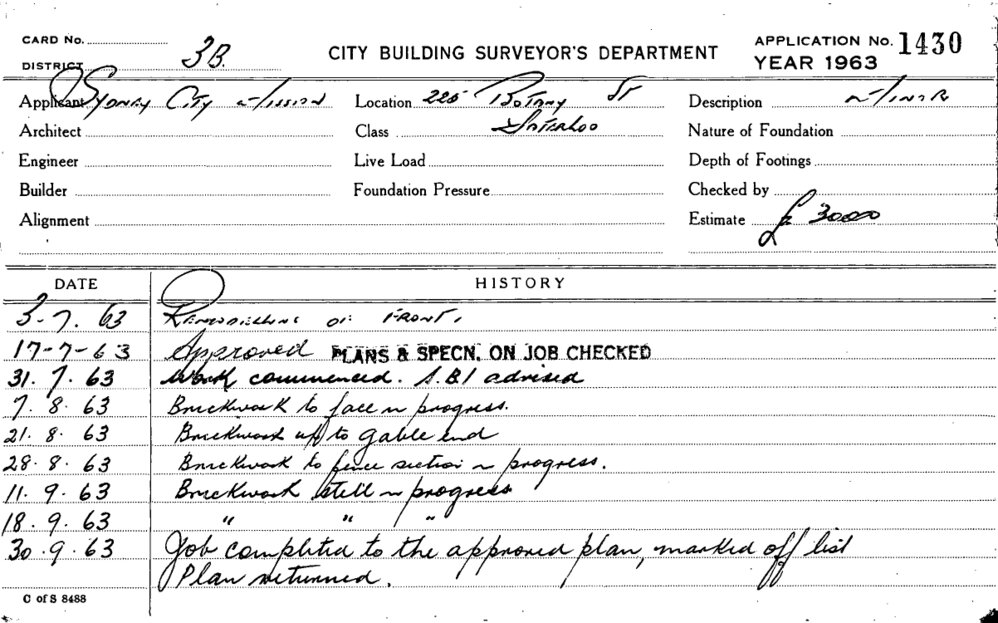 CARD No.
DISTRICT 3B.
CITY BUILDING SURVEYOR'S DEPARTMENT
APPLICATION No. 1430
YEAR 1963
Applicant Sydney City Mission
Location 225 Botany St
Description Minor
Architect
Class Waterloo
Nature of Foundation
Engineer
Live Load
Depth of Footings
Builder
Foundation Pressure
Checked by
Alignment
Estimate £ 3000
DATE HISTORY
3-7.63 Remodelling of Front.
17-7-63 Approved PLANS & SPECN. ON JOB CHECKED
31.7.63 Work commenced. S.B.I advised
7.8.63 Brickwork to face in progress.
21.8.63 Brickwork up to gable end
28.8.63 Brickwork to fence section in progress.
11.9.63 Brickwork still in progress
18.9.63 " " "
30.9.63 Job completed to the approved plan, marked off list
Plan returned.
C of S 8488